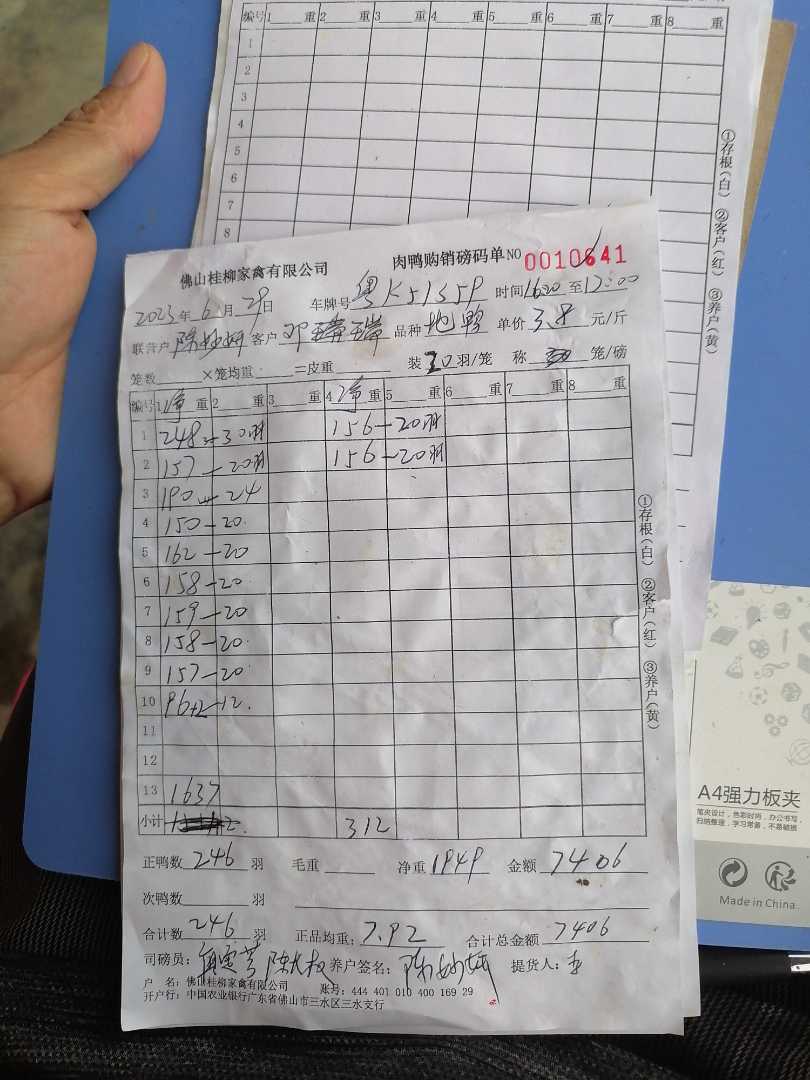 编号 1 重 2 重 3 重 4 重 5 重 6 重 7 重 8 重
1
2
3
4
5
6
7
8
①存根(白) ②客户(红) ③养户(黄)
佛山桂柳家禽有限公司 肉鸭购销磅码单 NO 0010641
2023年6月29日 车牌号 粤K51359 时间1620至17:00
联营户 客户 邓 品种 地鸭 单价 3.8 元/斤
笼数 ×笼均重 =皮重 装 20 羽/笼 称 笼/磅
编号 1 净 重 2 重 3 重 4 净 重 5 重 6 重 7 重 8 重
1 248-30羽 156-20羽
2 157-20羽 156-20羽
3 190-24
4 150-20
5 162-20
6 158-20
7 159-20
8 158-20
9 157-20
10 96+2-12
11
12
13 1637
小计 312
正鸭数 246 羽 毛重 净重 1949 金额 7406
次鸭数 羽
合计数 246 羽 正品均重: 7.92 合计总金额 7406
司磅员: 养户签名: 提货人:
户 名: 佛山桂柳家禽有限公司 账号: 444 401 010 400 169 29
开户行: 中国农业银行广东省佛山市三水区三水支行
①存根(白) ②客户(红) ③养户(黄)
A4强力板夹
笔夹设计，色彩时尚，办公书写，
归纳整理，学习常备，不易破损
Made in China